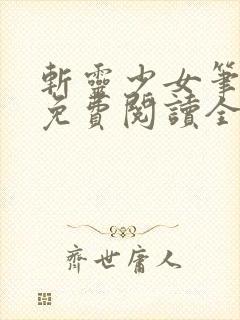 斬靈少女筆
免費閱讀全
齊世庸人